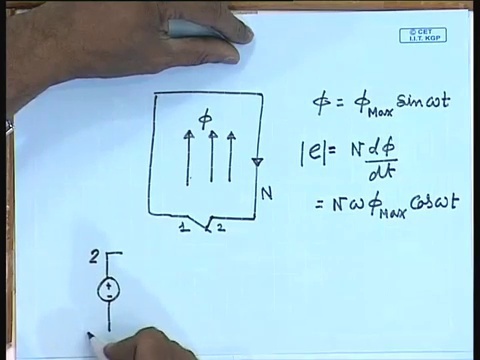 © CET
I.I.T. KGP
ϕ = ϕMax sinωt
ϕ
|e| = N dϕ/dt
N
= NωϕMax cosωt
1 2
2
+
-